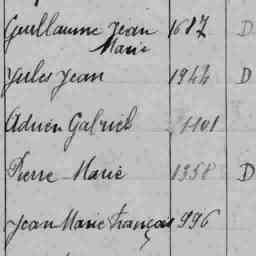 Guillaume Jean 1687 D
Marie
Jules Jean 1944 D
Adrien Gabriel 1101
Pierre Marie 1358 D
Jean Marie François 996